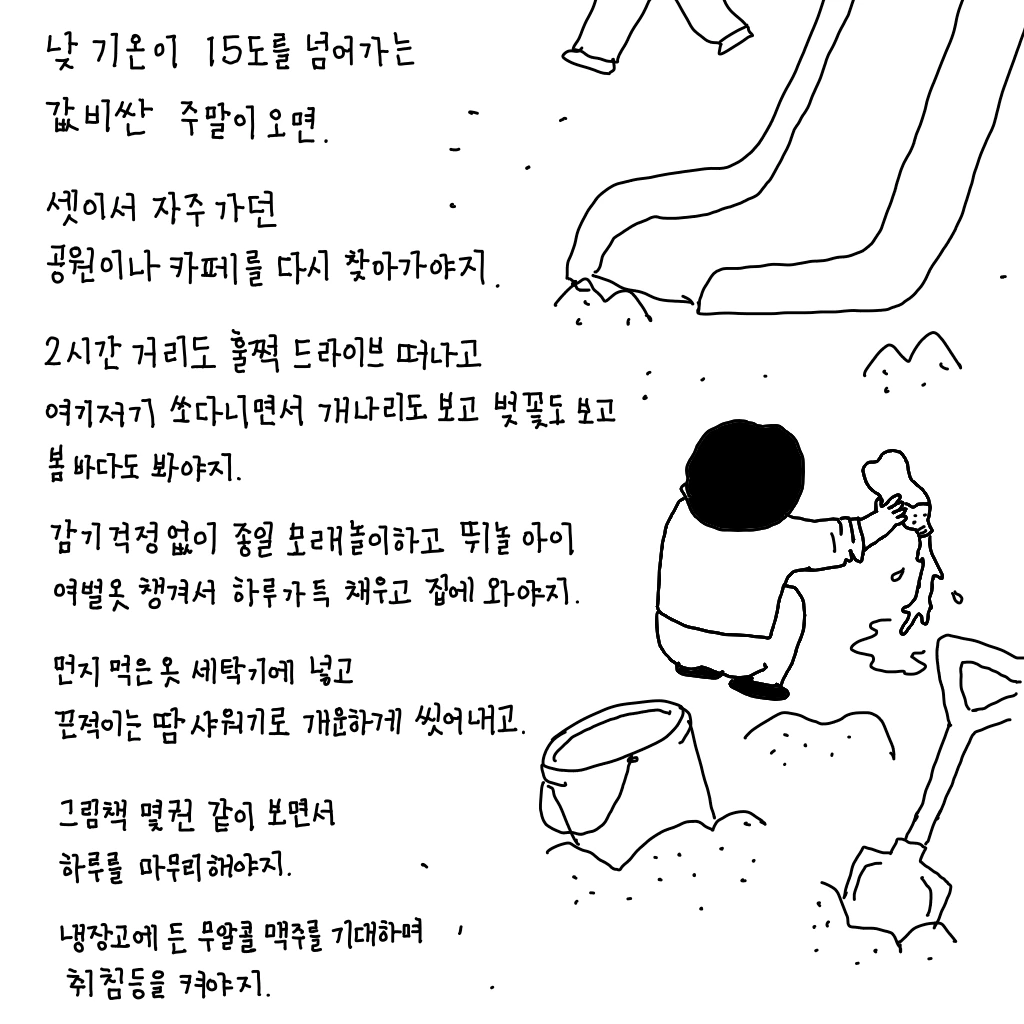 낮 기온이 15도를 넘어가는
값비싼 주말이 오면.
셋이서 자주 가던
공원이나 카페를 다시 찾아가야지.
2시간 거리도 훌쩍 드라이브 떠나고
여기저기 쏘다니면서 개나리도 보고 벚꽃도 보고
봄 바다도 봐야지.
감기 걱정 없이 종일 모래놀이하고 뛰놀 아이
여벌옷 챙겨서 하루 가득 채우고 집에 와야지.
먼지 먹은 옷 세탁기에 넣고
끈적이는 땀 샤워기로 개운하게 씻어내고.
그림책 몇 권 같이 보면서
하루를 마무리해야지.
냉장고에 든 무알콜 맥주를 기대하며
취침등을 켜야지.